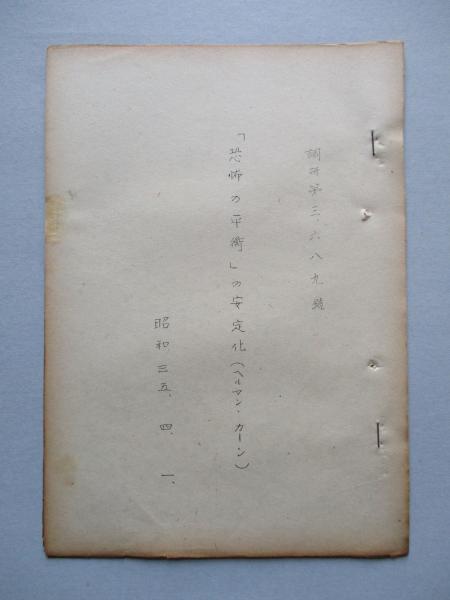 調研第三、六八九號
「恐怖の平衡」の安定化(ヘルマン・カーン)
昭和三五、四、一、